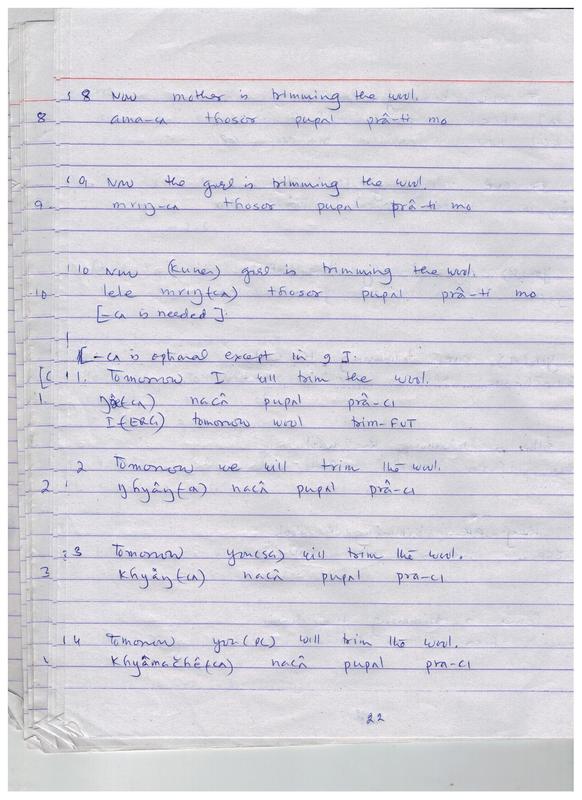 8 Now mother is trimming the wool.
8 ama-cʌ thosor pupʌl prâ-ti mo
9 Now the girl is trimming the wool.
9 mriŋ-cʌ thosor pupʌl prâ-ti mo
10 Now (Kunes) girl is trimming the wool.
10 lele mriŋ(cʌ) thosor pupʌl prâ-ti mo
[-cʌ is needed].
[-cʌ is optional except in 9].
1. Tomorrow I will trim the wool.
1. nacâ pupʌl prâ-cɪ
I(ERG) tomorrow wool trim-FUT
2 Tomorrow we will trim the wool.
2 nacâ pupʌl prâ-cɪ
3 Tomorrow you(SG) will trim the wool.
3 khyâŋ(cʌ) nacâ pupʌl pra-cɪ
4 Tomorrow you(PL) will trim the wool.
khyâmačhê(cʌ) nacâ pupʌl pra-cɪ
22